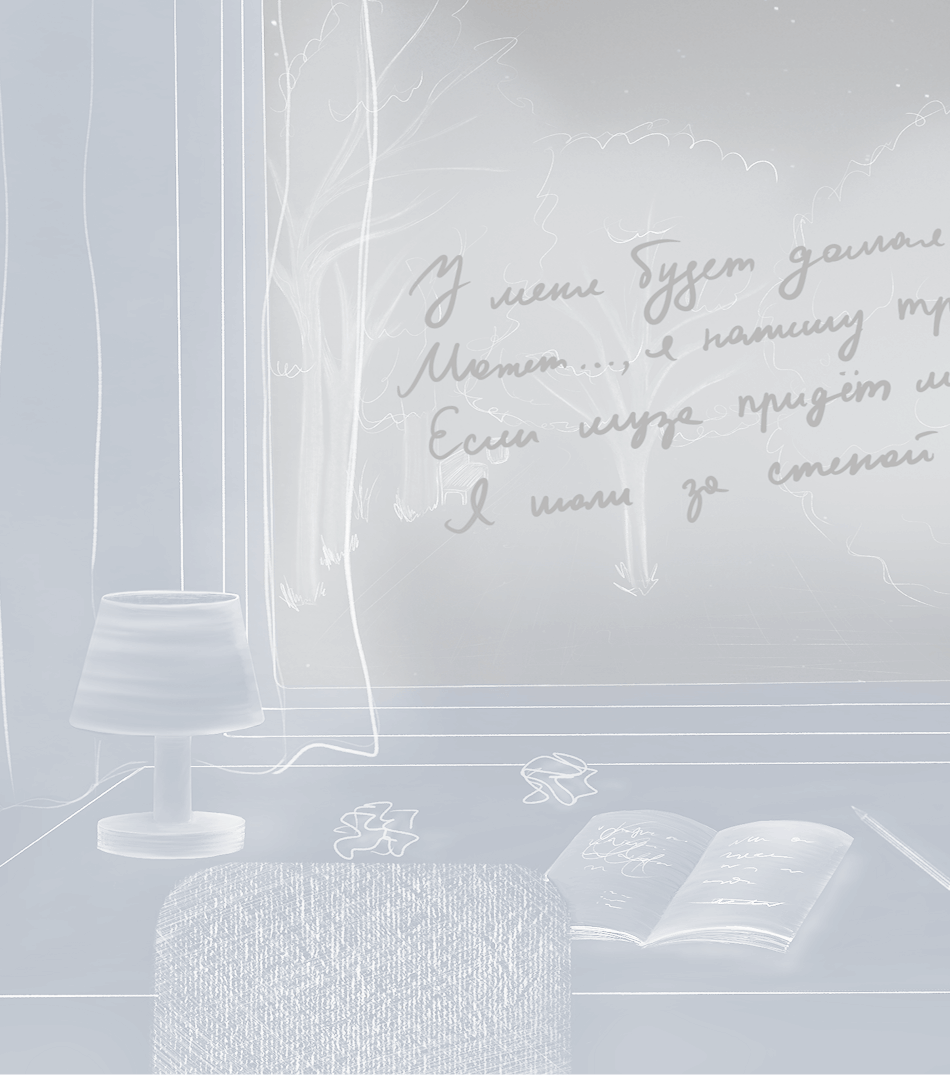 У меня будет
Может..., я напишу
Если муза придёт
Я шали за стеной